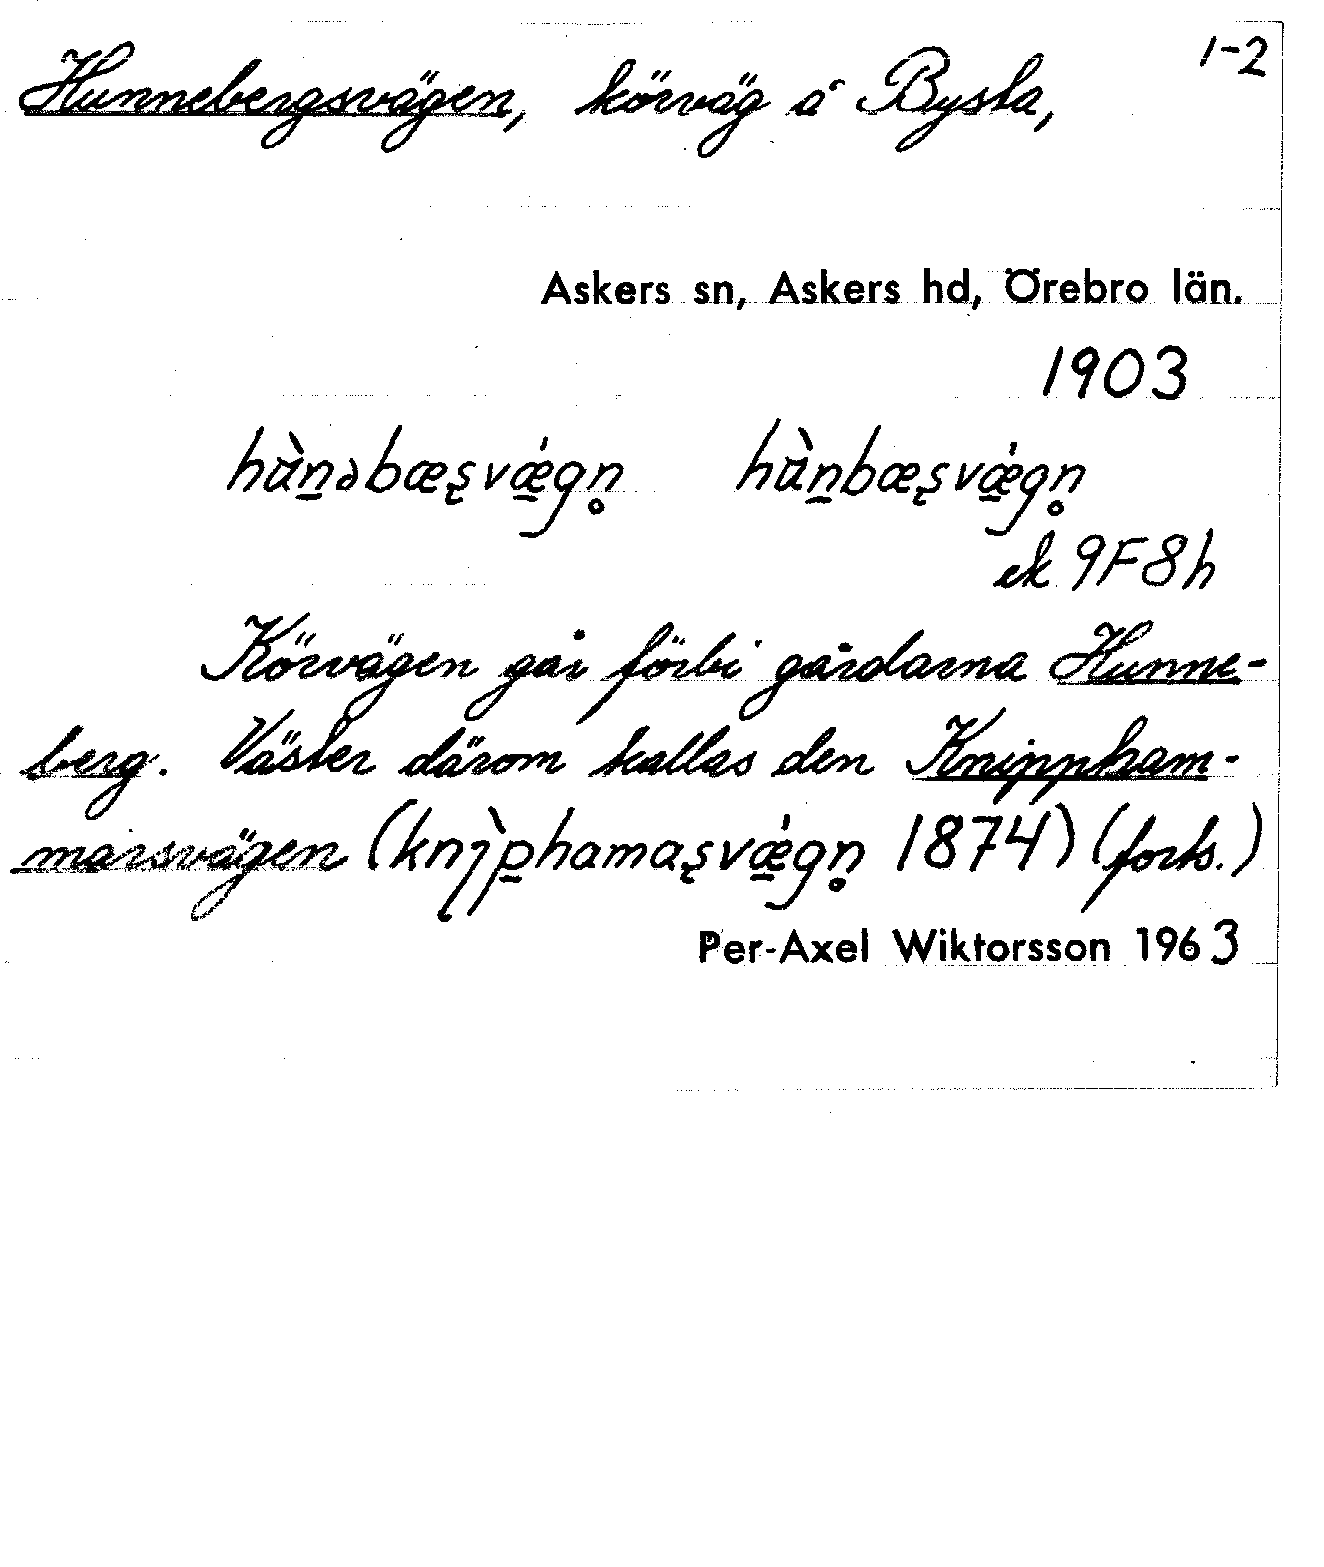 1-2
Hunnebergsvägen, körväg å Bysta,
Askers sn, Askers hd, Örebro län.
1903
hùn̲əbæʂvǽ̲gn̥ hùn̲bæʂvǽ̲gn̥
ek 9F8h
Körvägen går förbi gårdarna Hunne-
berg. Väster därom kallas den Knippham-
marsvägen (knìp̲hamaʂvǽ̲gn̥ 1874) (forts.)
Per-Axel Wiktorsson 1963